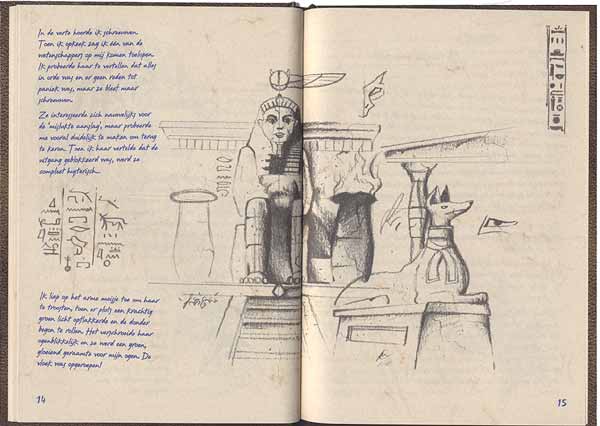 In de verte hoorde ik schreeuwen.
Toen ik opkeek zag ik één van de
wetenschappers op mij komen toelopen.
Ik probeerde haar te vertellen dat alles
in orde was en er geen reden tot
paniek was, maar ze bleef maar
schreeuwen.
Ze interesseerde zich nauwelijks voor
de 'mislukte aanslag', maar probeerde
me vooral duidelijk te maken om terug
te keren. Toen ik haar vertelde dat de
uitgang geblokkeerd was, werd ze
compleet hysterisch...
Ik liep op het arme meisje toe om haar
te troosten, toen er plots een krachtig
groen licht opflakkerde en de donder
begon te rollen. Het verschroeide haar
ogenblikkelijk en ze werd een groen,
gloeiend geraamte voor mijn ogen. De
vloek was opgeroepen!
14
15